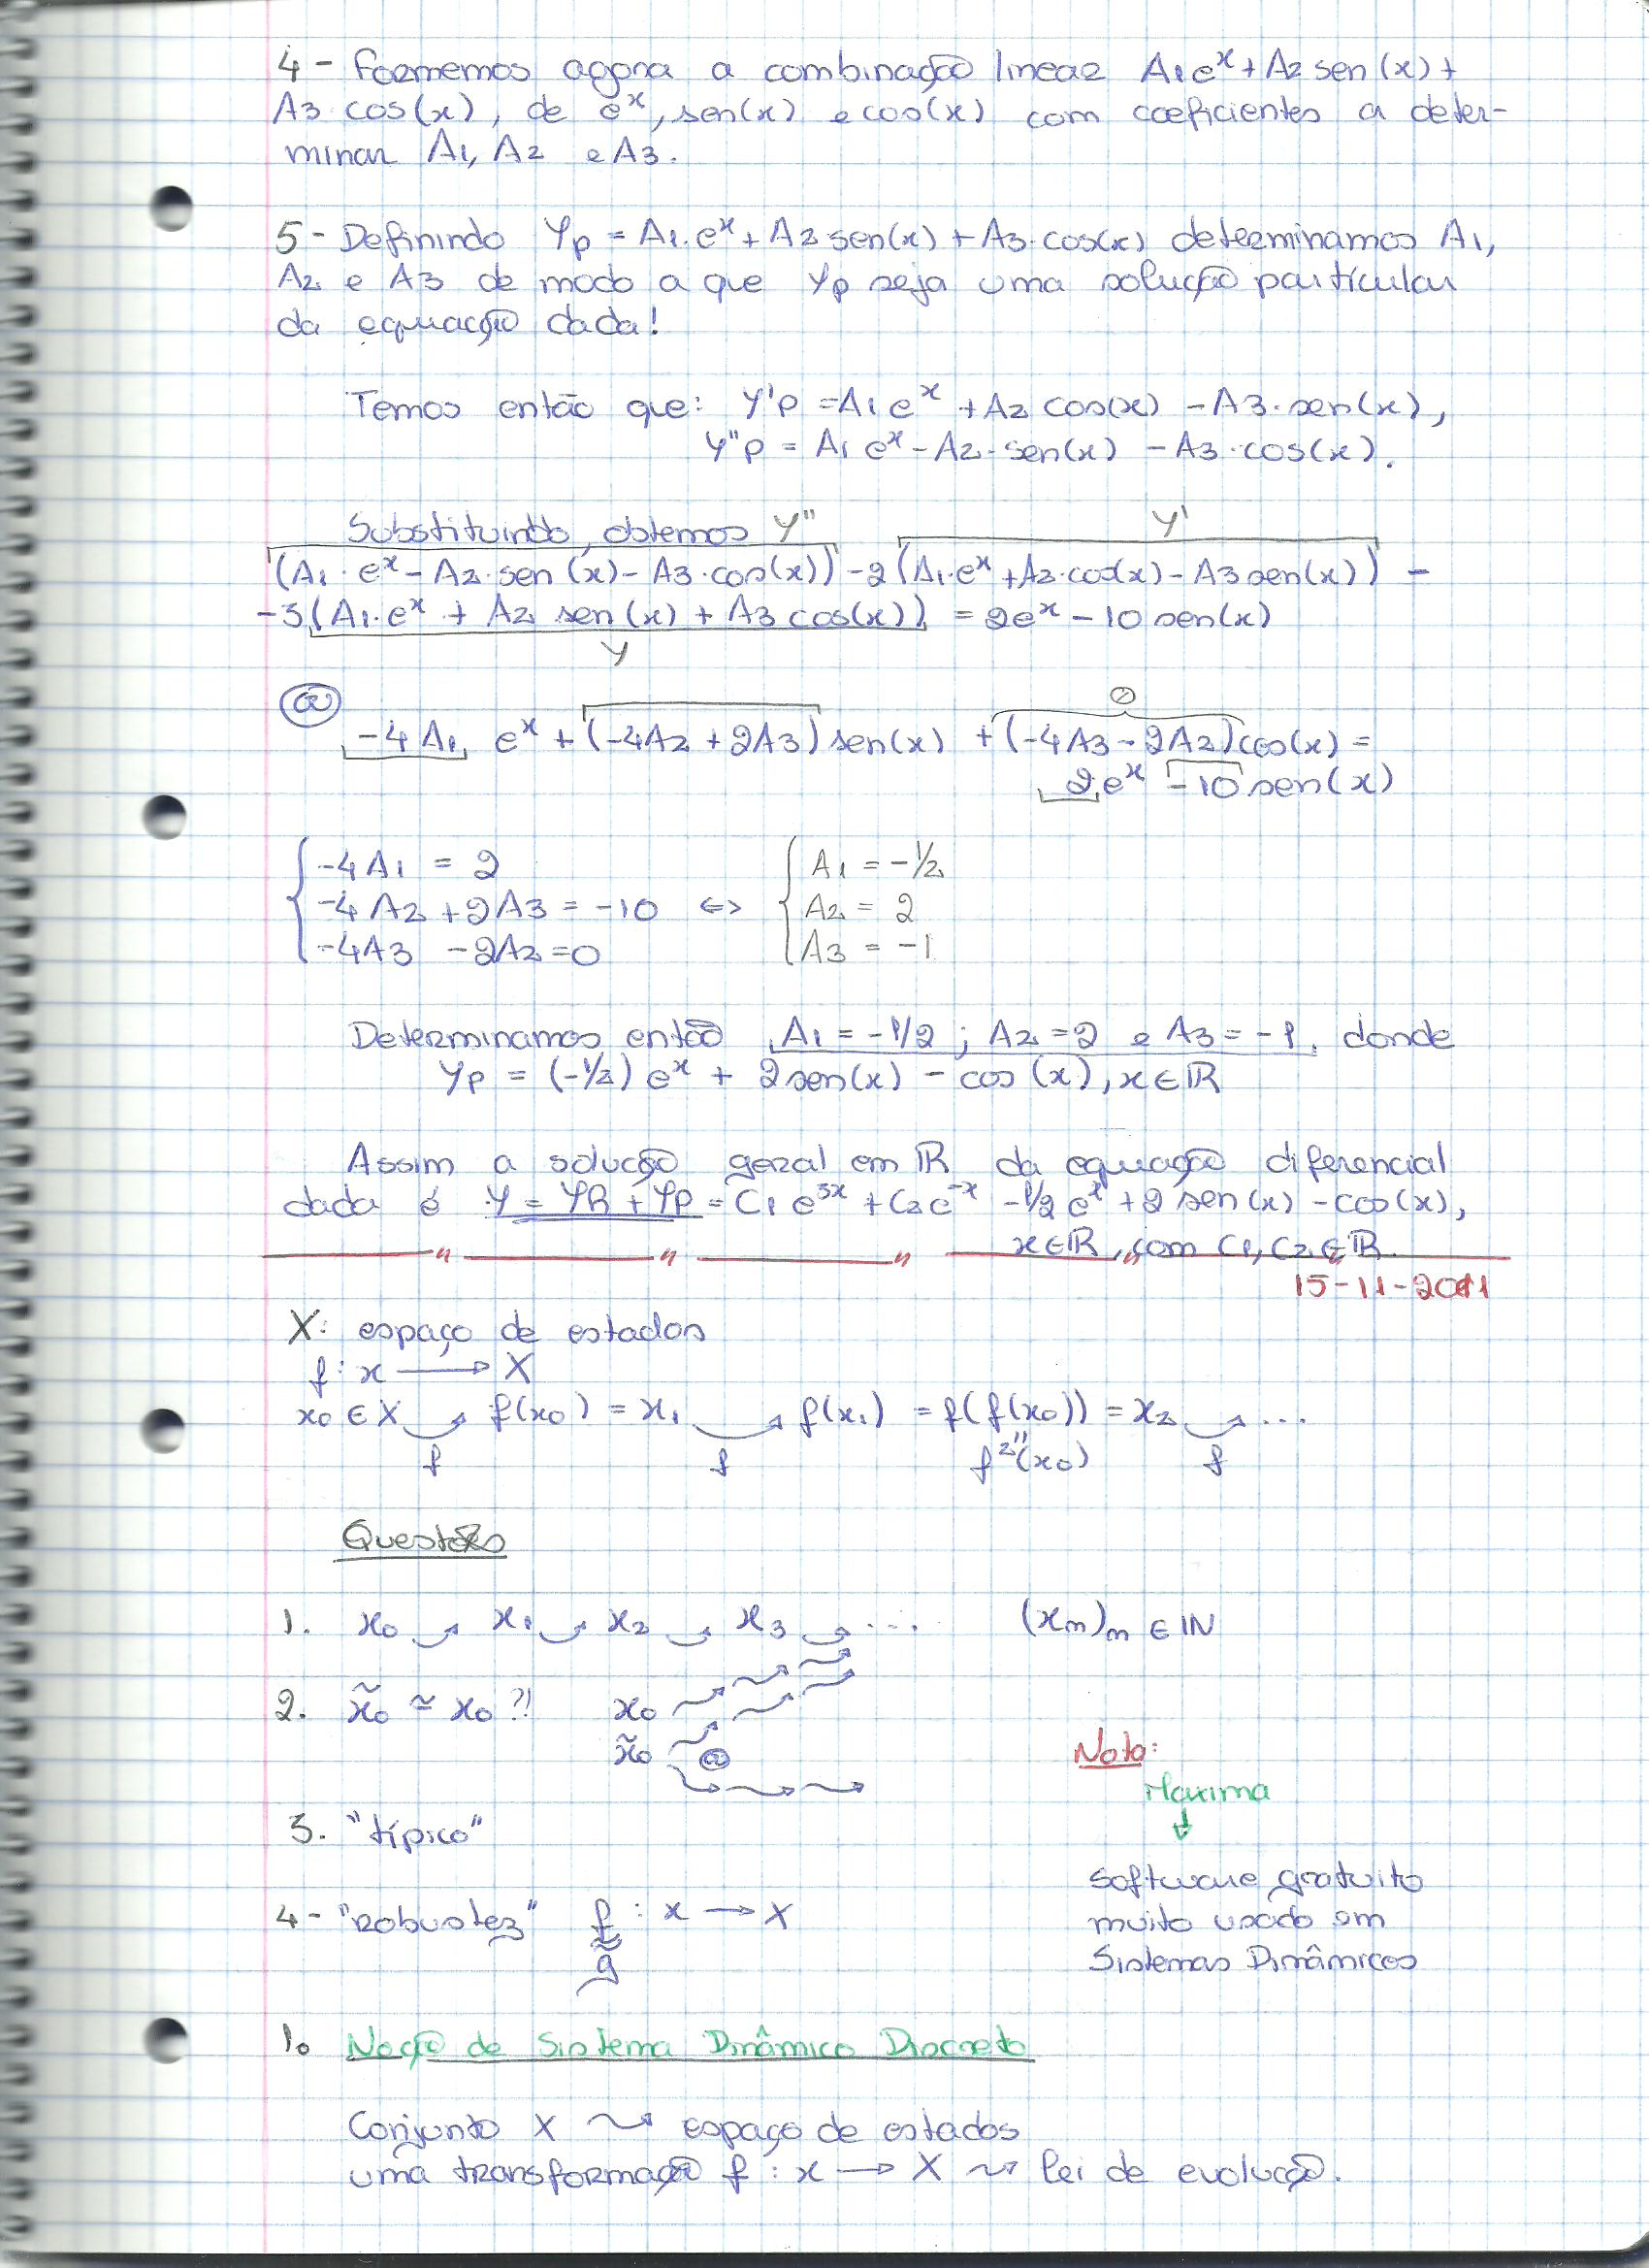 4 - Formemos agora a combinação linear A1 e^x + A2 sen(x) +
A3 cos(x), de e^x, sen(x) e cos(x) com coeficientes a deter-
minar A1, A2 e A3.
5 - Definindo Yp = A1.e^x + A2 sen(x) + A3.cos(x) determinamos A1,
A2 e A3 de modo a que Yp seja uma solução particular
da equação dada!
Temos então que: Y'p = A1 e^x + A2 cos(x) - A3.sen(x),
Y''p = A1 e^x - A2.sen(x) - A3.cos(x).
Substituindo, obtemos Y'' Y'
(A1.e^x - A2.sen(x) - A3.cos(x)) - 2(A1.e^x + A2.cos(x) - A3 sen(x)) -
-3(A1.e^x + A2 sen(x) + A3 cos(x)) = 2e^x - 10 sen(x)
Y
0
-4A1 e^x + (-4A2 + 2A3) sen(x) + (-4A3 - 2A2) cos(x) =
2e^x - 10 sen(x)
{ -4A1 = 2 { A1 = -1/2
-4A2 + 2A3 = -10 <=> A2 = 2
-4A3 - 2A2 = 0 A3 = -1
Determinamos então A1 = -1/2 ; A2 = 2 e A3 = -1, donde
Yp = (-1/2) e^x + 2 sen(x) - cos(x), x ∈ ℝ
Assim a solução geral em ℝ da equação diferencial
dada é Y = YR + YP = C1 e^3x + C2 e^-x - 1/2 e^x + 2 sen(x) - cos(x),
x ∈ ℝ, com C1, C2 ∈ ℝ.
15-11-2011
X: espaço de estados
f : x → X
x0 ∈ X f(x0) = x1 f(x1) = f(f(x0)) = x2 ...
f f f²(x0) f
Questões
1. x0 x1 x2 x3 ... (xn)n ∈ ℕ
2. x̃0 ≃ x0 ?! x0
x̃0
Nota:
Maxima
3. "típico"
software gratuito
4 - "robustez" f : x → X
muito usado em
g̃
Sistemas Dinâmicos
1. Noção de Sistema Dinâmico Discreto
Conjunto X ⤳ espaço de estados
uma transformação f : x → X ⤳ lei de evolução.